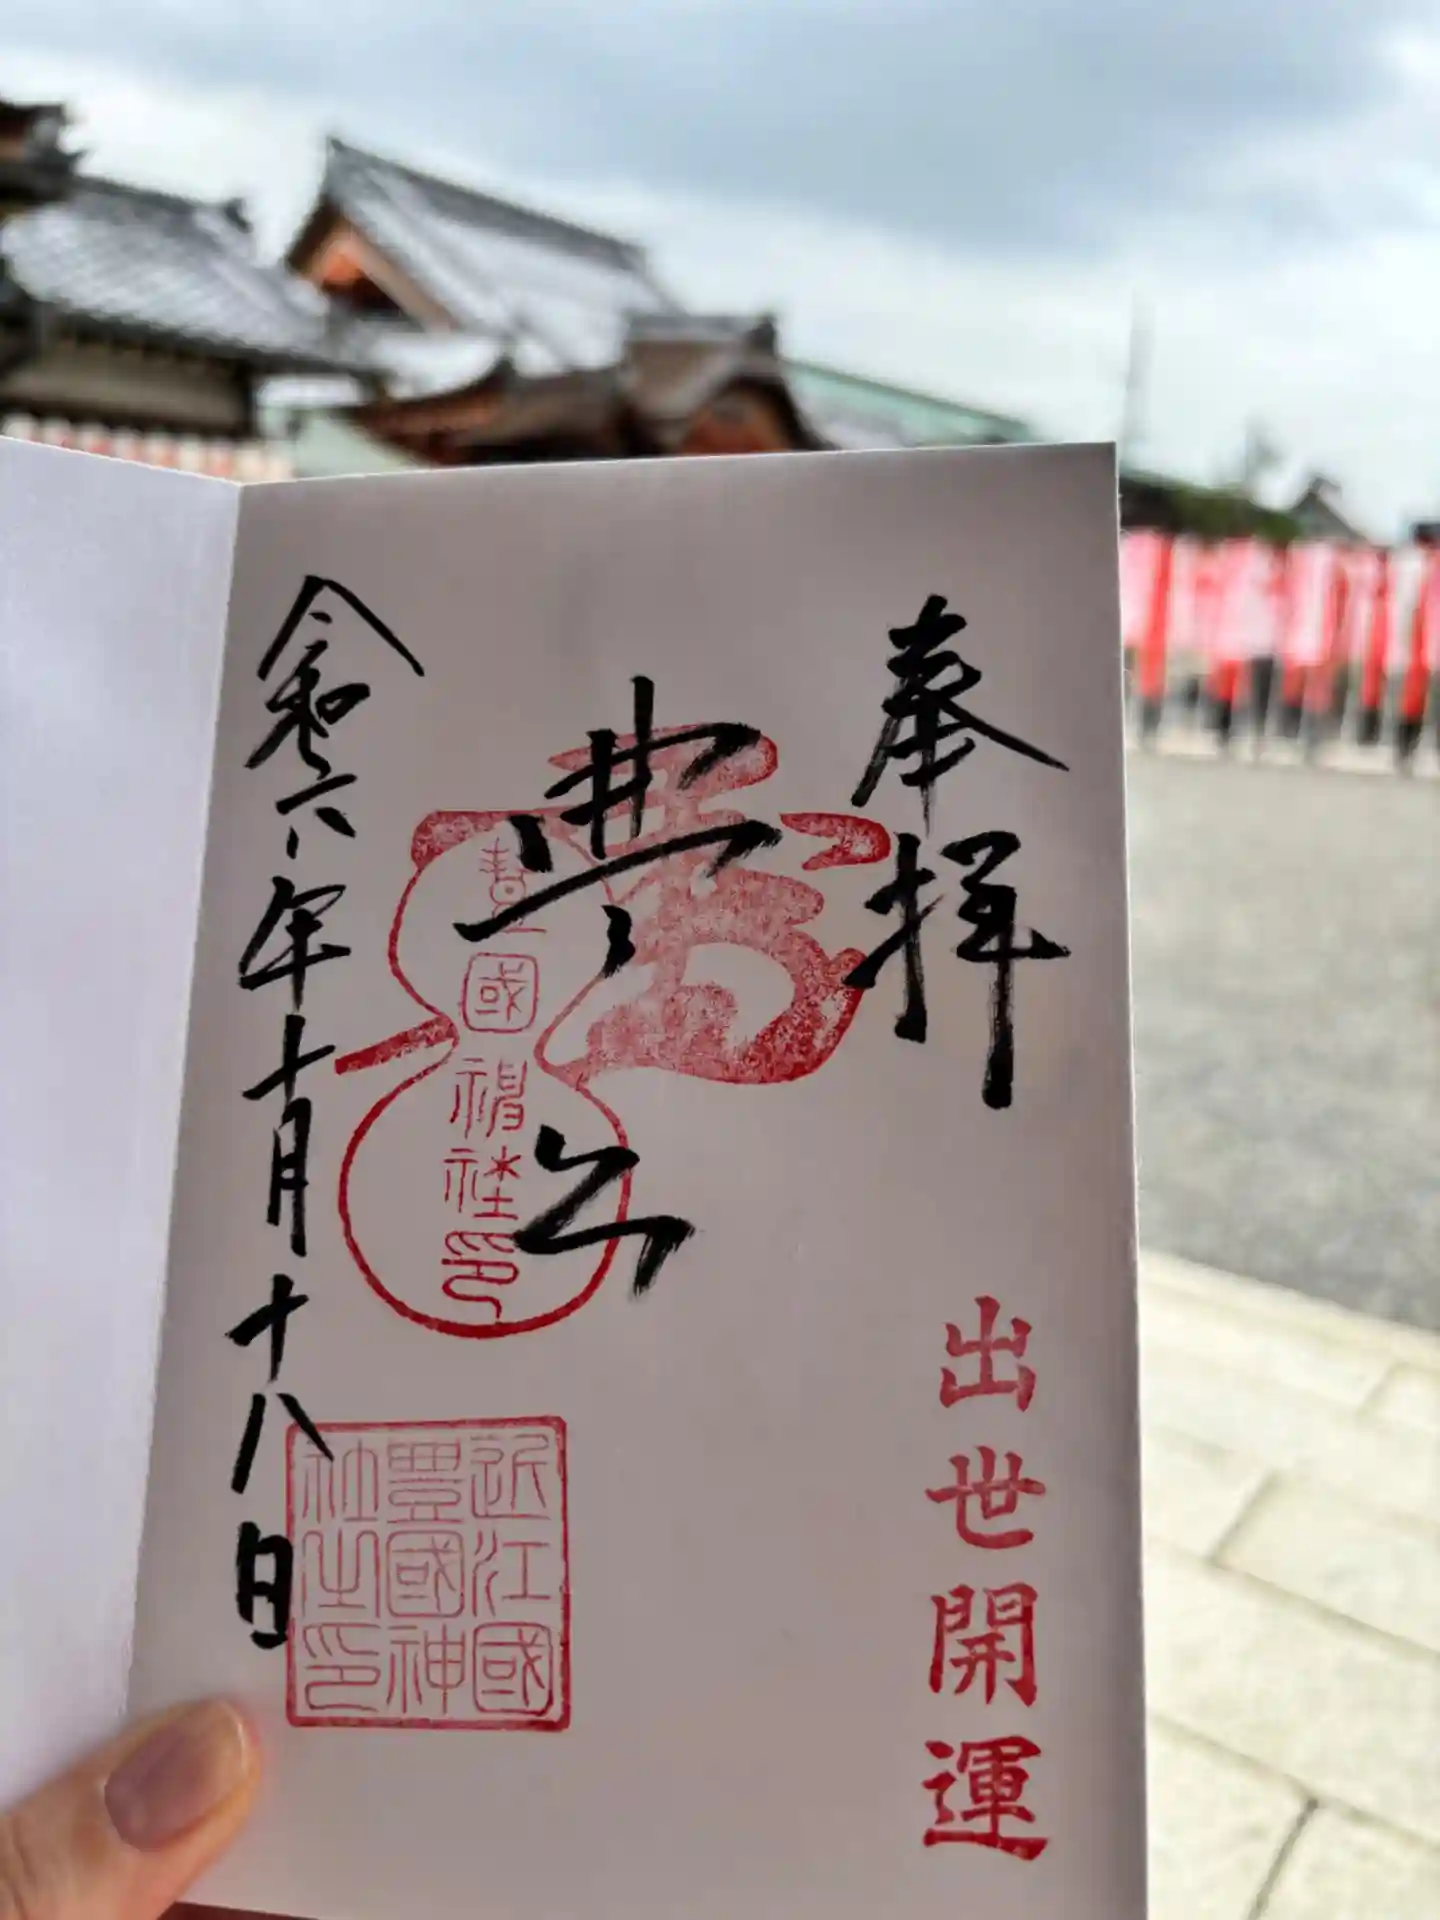 奉拝
出世開運
豊公
豊國神社印
令和六年十月十八日
近江國
豊國神
社之印